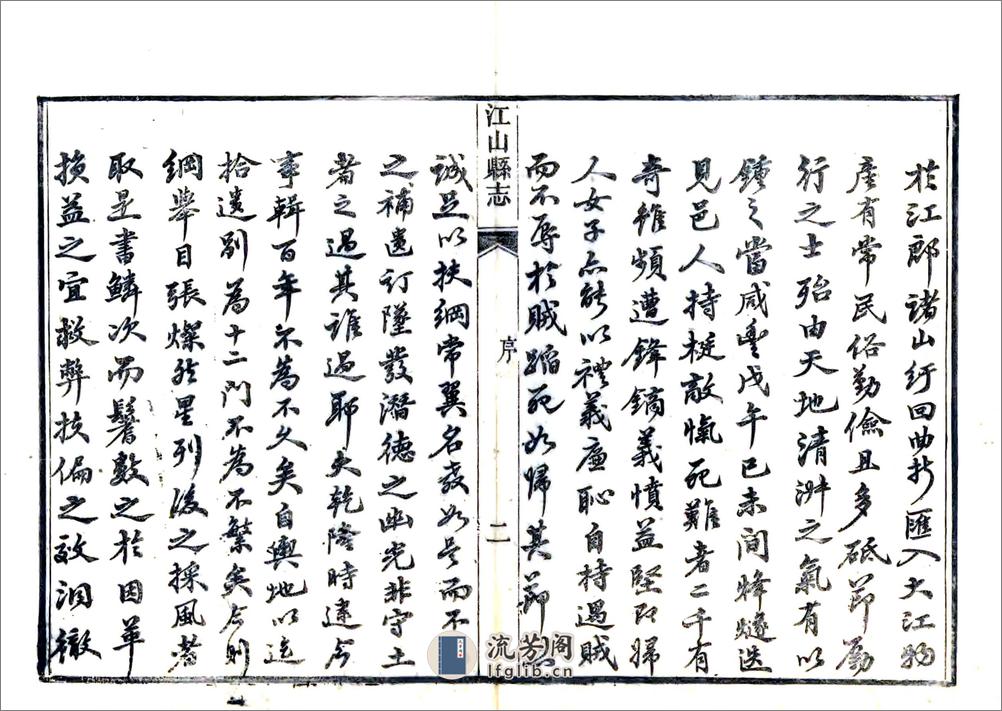 於江郎諸山紆回曲折匯入大江物
產有常民俗勤儉且多砥節勵
行之士殆由天地清淑之氣有以
鍾之當咸豐戊午己未間烽燧迭
見邑人持梃敵愾死難者二千有
奇雖頻遭鋒鏑義憤益堅即婦
人女子亦能以禮義廉恥自持遇賊
而不辱於賊蹈死如歸其節
江山縣志
序
二
誠足以扶綱常翼名教如是而不
之補遺訂墜發潛德之幽光非守土
者之過其誰過耶夫乾隆時逮今
事輯百年不為不久矣自輿地以迄
拾遺別為十二門不為不繁矣今則
綱舉目張燦然星列後之採風者
取是書鱗次而髻數之於因革
損益之宜救弊扶偏之政洞徹
流芳阁
lfglib.cn